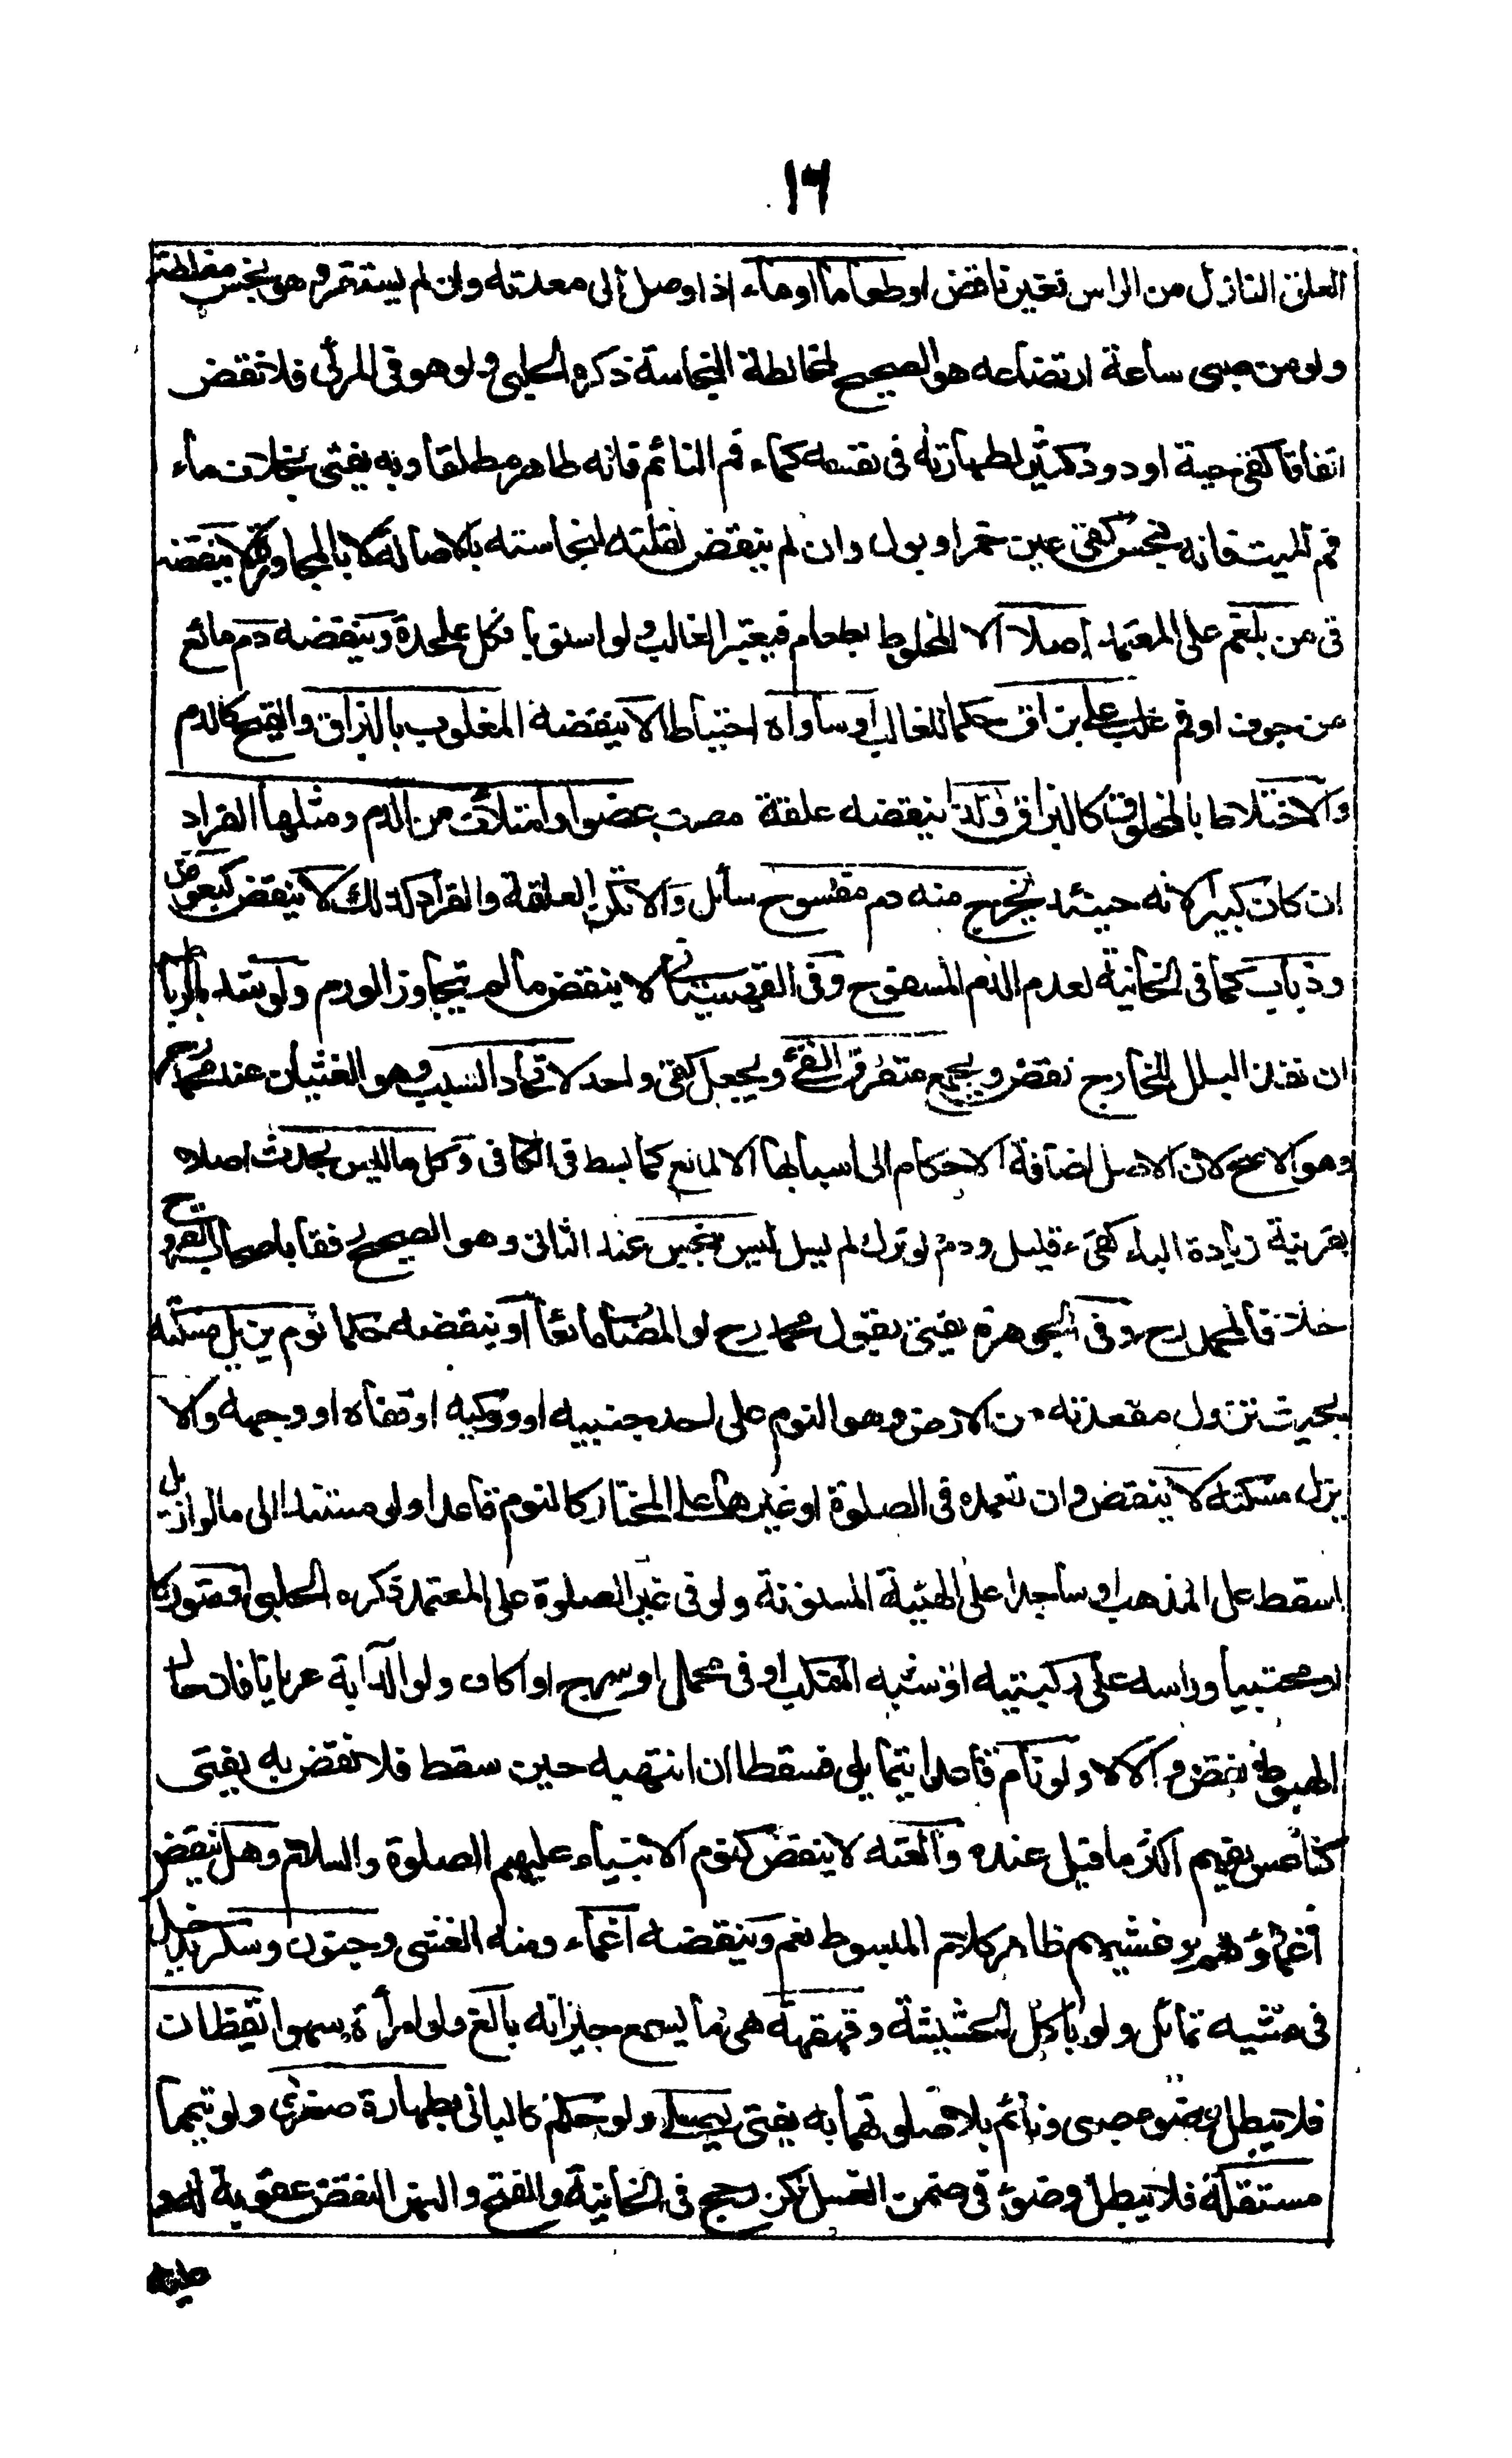 ١٦
العلق النازل من الراس فغير ناقض او طعاما او ماء اذا وصل الى معدته وان لم يستقر وهو نجس مغلظة
ولو من صبى ساعة ارتضاعه هو الصحيح لمخالطة النجاسة ذكره الحلبى ولو هو فى المرئى فلا نقض
اتفاقا كقئ حية او دود كثير لطهارته فى نفسه كماء فم النائم فانه طاهر مطلقا وبه يفتى بخلاف ماء
فم الميت فانه نجس كقئ عين خمر او بول وان لم ينقض لقلته لنجاسته بالاصالة لا بالمجاورة لا ينقضه
قئ من بلغم على المعتمد اصلا الا المخلوط بطعام فيعتبر الغالب ولو استويا فكل على حدة وينقضه دم مائع
من جوف او فم غلب على بزاق حكما للغالب او ساواه احتياطا لا ينقضه المغلوب بالبزاق والقيح كالدم
والاختلاط بالمخاط كالبزاق وكذا ينقضه علقة مصت عضوا وامتلأت من الدم ومثلها القراد
ان كان كبيرا لانه حينئذ يخرج منه دم مفسوح سائل والا تكن العلقة والقراد كذلك لا ينقض كبعوض
وذباب كما فى الخانية لعدم الدم المسفوح وفى القهستانى لا ينقض ما لم يتجاوز الورم ولو شد بالرباط
ان نفذ البلل للخارج نقض ويجمع متفرق القئ ويجعل كقئ واحد لاتحاد السبب وهو الغثيان عند محمد رح
وهو الاصح لان الاصل اضافة الاحكام الى اسبابها الا لمانع كما بسط فى الكافى وكل ما ليس بحدث اصلا
بقرينة زيادة الباء كقئ قليل ودم لو ترك لم يسل ليس بنجس عند الثانى وهو الصحيح رفقا باصحاب القروح
خلافا لمحمد رح وفى الجوهرة يفتى بقول محمد رح لو المصاب مائعا او ينقضه حكما نوم يزيل مسكته
بحيث تزول مقعدته من الارض وهو النوم على احد جنبيه او وركيه او قفاه او وجهه والا
يزل مسكته لا ينقض وان تعمده فى الصلوة او غيرها على المختار كالنوم قاعدا ولو مستندا الى ما لو ازيل
لسقط على المذهب او ساجدا على الهيئة المسنونة ولو فى غير الصلوة على المعتمد ذكره الحلبى او متوركا
او محتبيا وراسه على ركبتيه او شبه المنكب او فى محمل او سرج او اكاف ولو الدابة عريانا فان حال
الهبوط نقض والا لا ولو نام قاعدا يتمايل فسقط ان انتبه حين سقط فلا نقض به يفتى
كناعس يفهم اكثر ما قيل عنده والعته لا ينقض كنوم الانبياء عليهم الصلوة والسلام وهل ينقض
اغماؤهم وغشيهم ظاهر كلام المبسوط نعم وينقضه اغماء ومنه الغشى وجنون وسكر بان يدخل
فى مشيه تمائل ولو باكل الحشيشة وقهقهة هى ما يسمع جيرانه بالغ ولو امرأة سهوا يقظان
فلا يبطل وضوء صبى ونائم بلا صلوتهما به يفتى يصلى ولو حكما كالبانى بطهارة صغرى ولو تيمما
مستقلة فلا يبطل وضوء فى ضمن الغسل لكن رجح فى الخانية والفتح والنهر النقض عقوبة له و